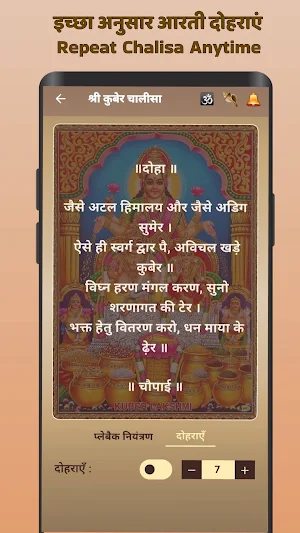 इच्छा अनुसार आरती दोहराएं
Repeat Chalisa Anytime
श्री कुबेर चालीसा
ॐ
॥दोहा ॥
जैसे अटल हिमालय और जैसे अडिग
सुमेर ।
ऐसे ही स्वर्ग द्वार पै, अविचल खड़े
कुबेर ॥
विघ्न हरण मंगल करण, सुनो
शरणागत की टेर ।
भक्त हेतु वितरण करो, धन माया के
ढ़ेर ॥
॥ चौपाई ॥
KUBER LAKSHMI
प्लेबैक नियंत्रण
दोहराएँ
दोहराएँ :
- 7 +